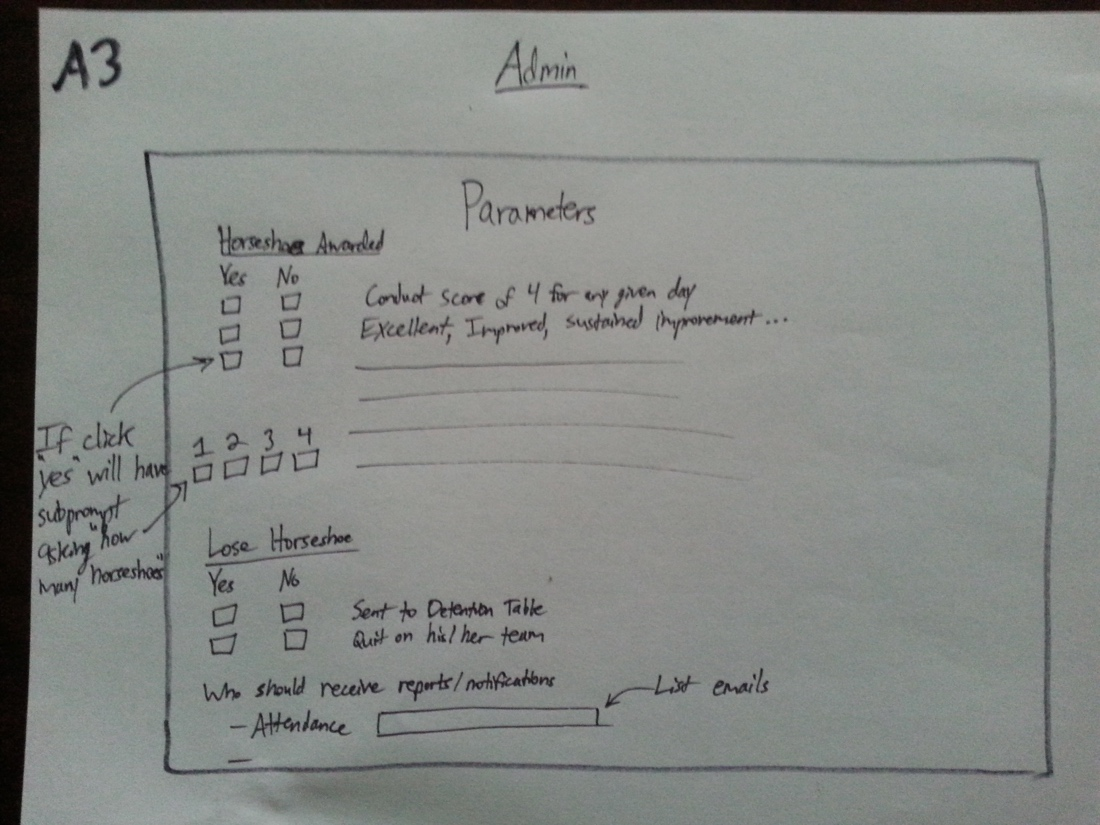 A3
Admin
Parameters
Horseshoe Awarded
Yes No
Conduct score of 4 for any given day
Excellent, Improved, sustained improvement...
1 2 3 4
If click
"yes" will have
subprompt
asking "how
many horseshoes"
Lose Horseshoe
Yes No
Sent to Detention Table
Quit on his/her team
Who should receive reports/notifications
List emails
– Attendance
–